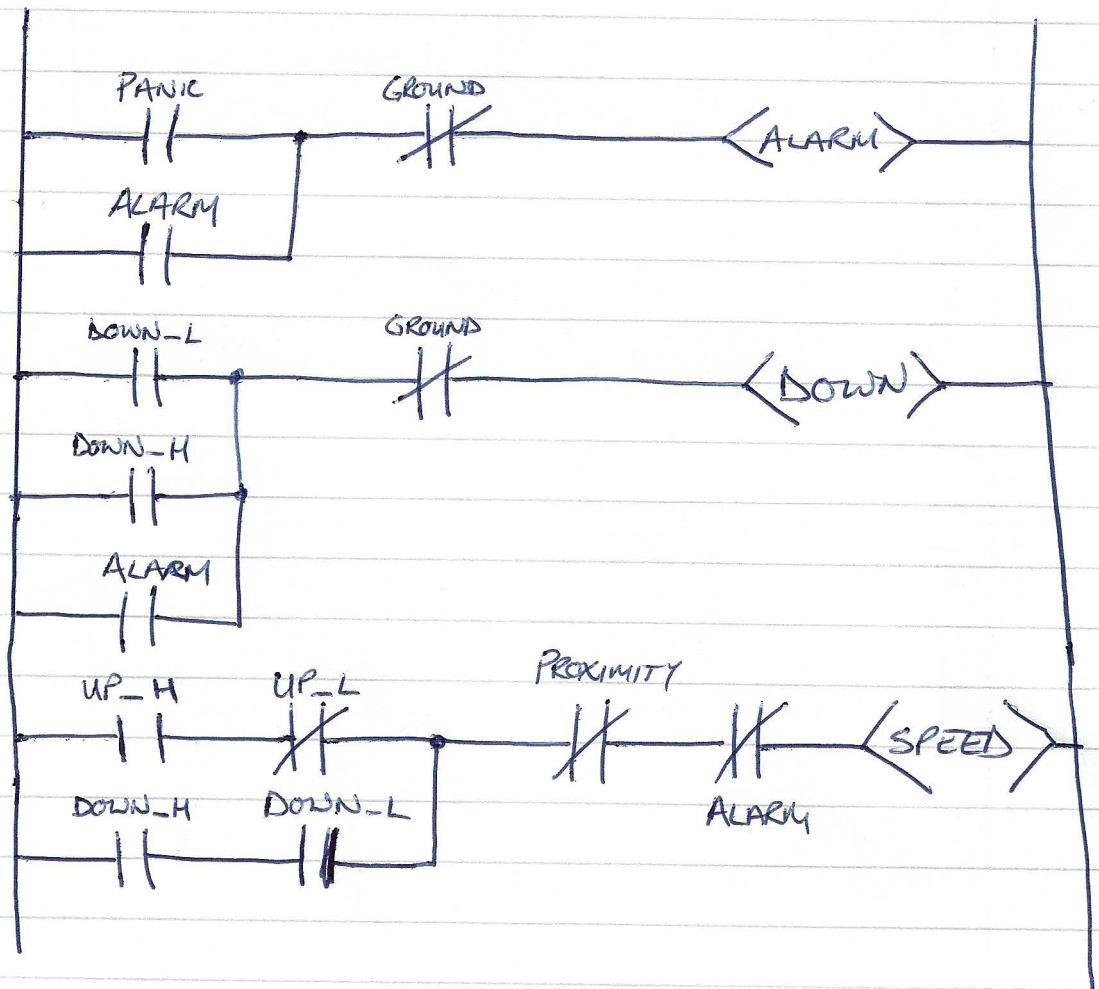 PANIC GROUND
ALARM
ALARM
DOWN_L GROUND
DOWN
DOWN_H
ALARM
UP_H UP_L PROXIMITY
SPEED
DOWN_H DOWN_L ALARM